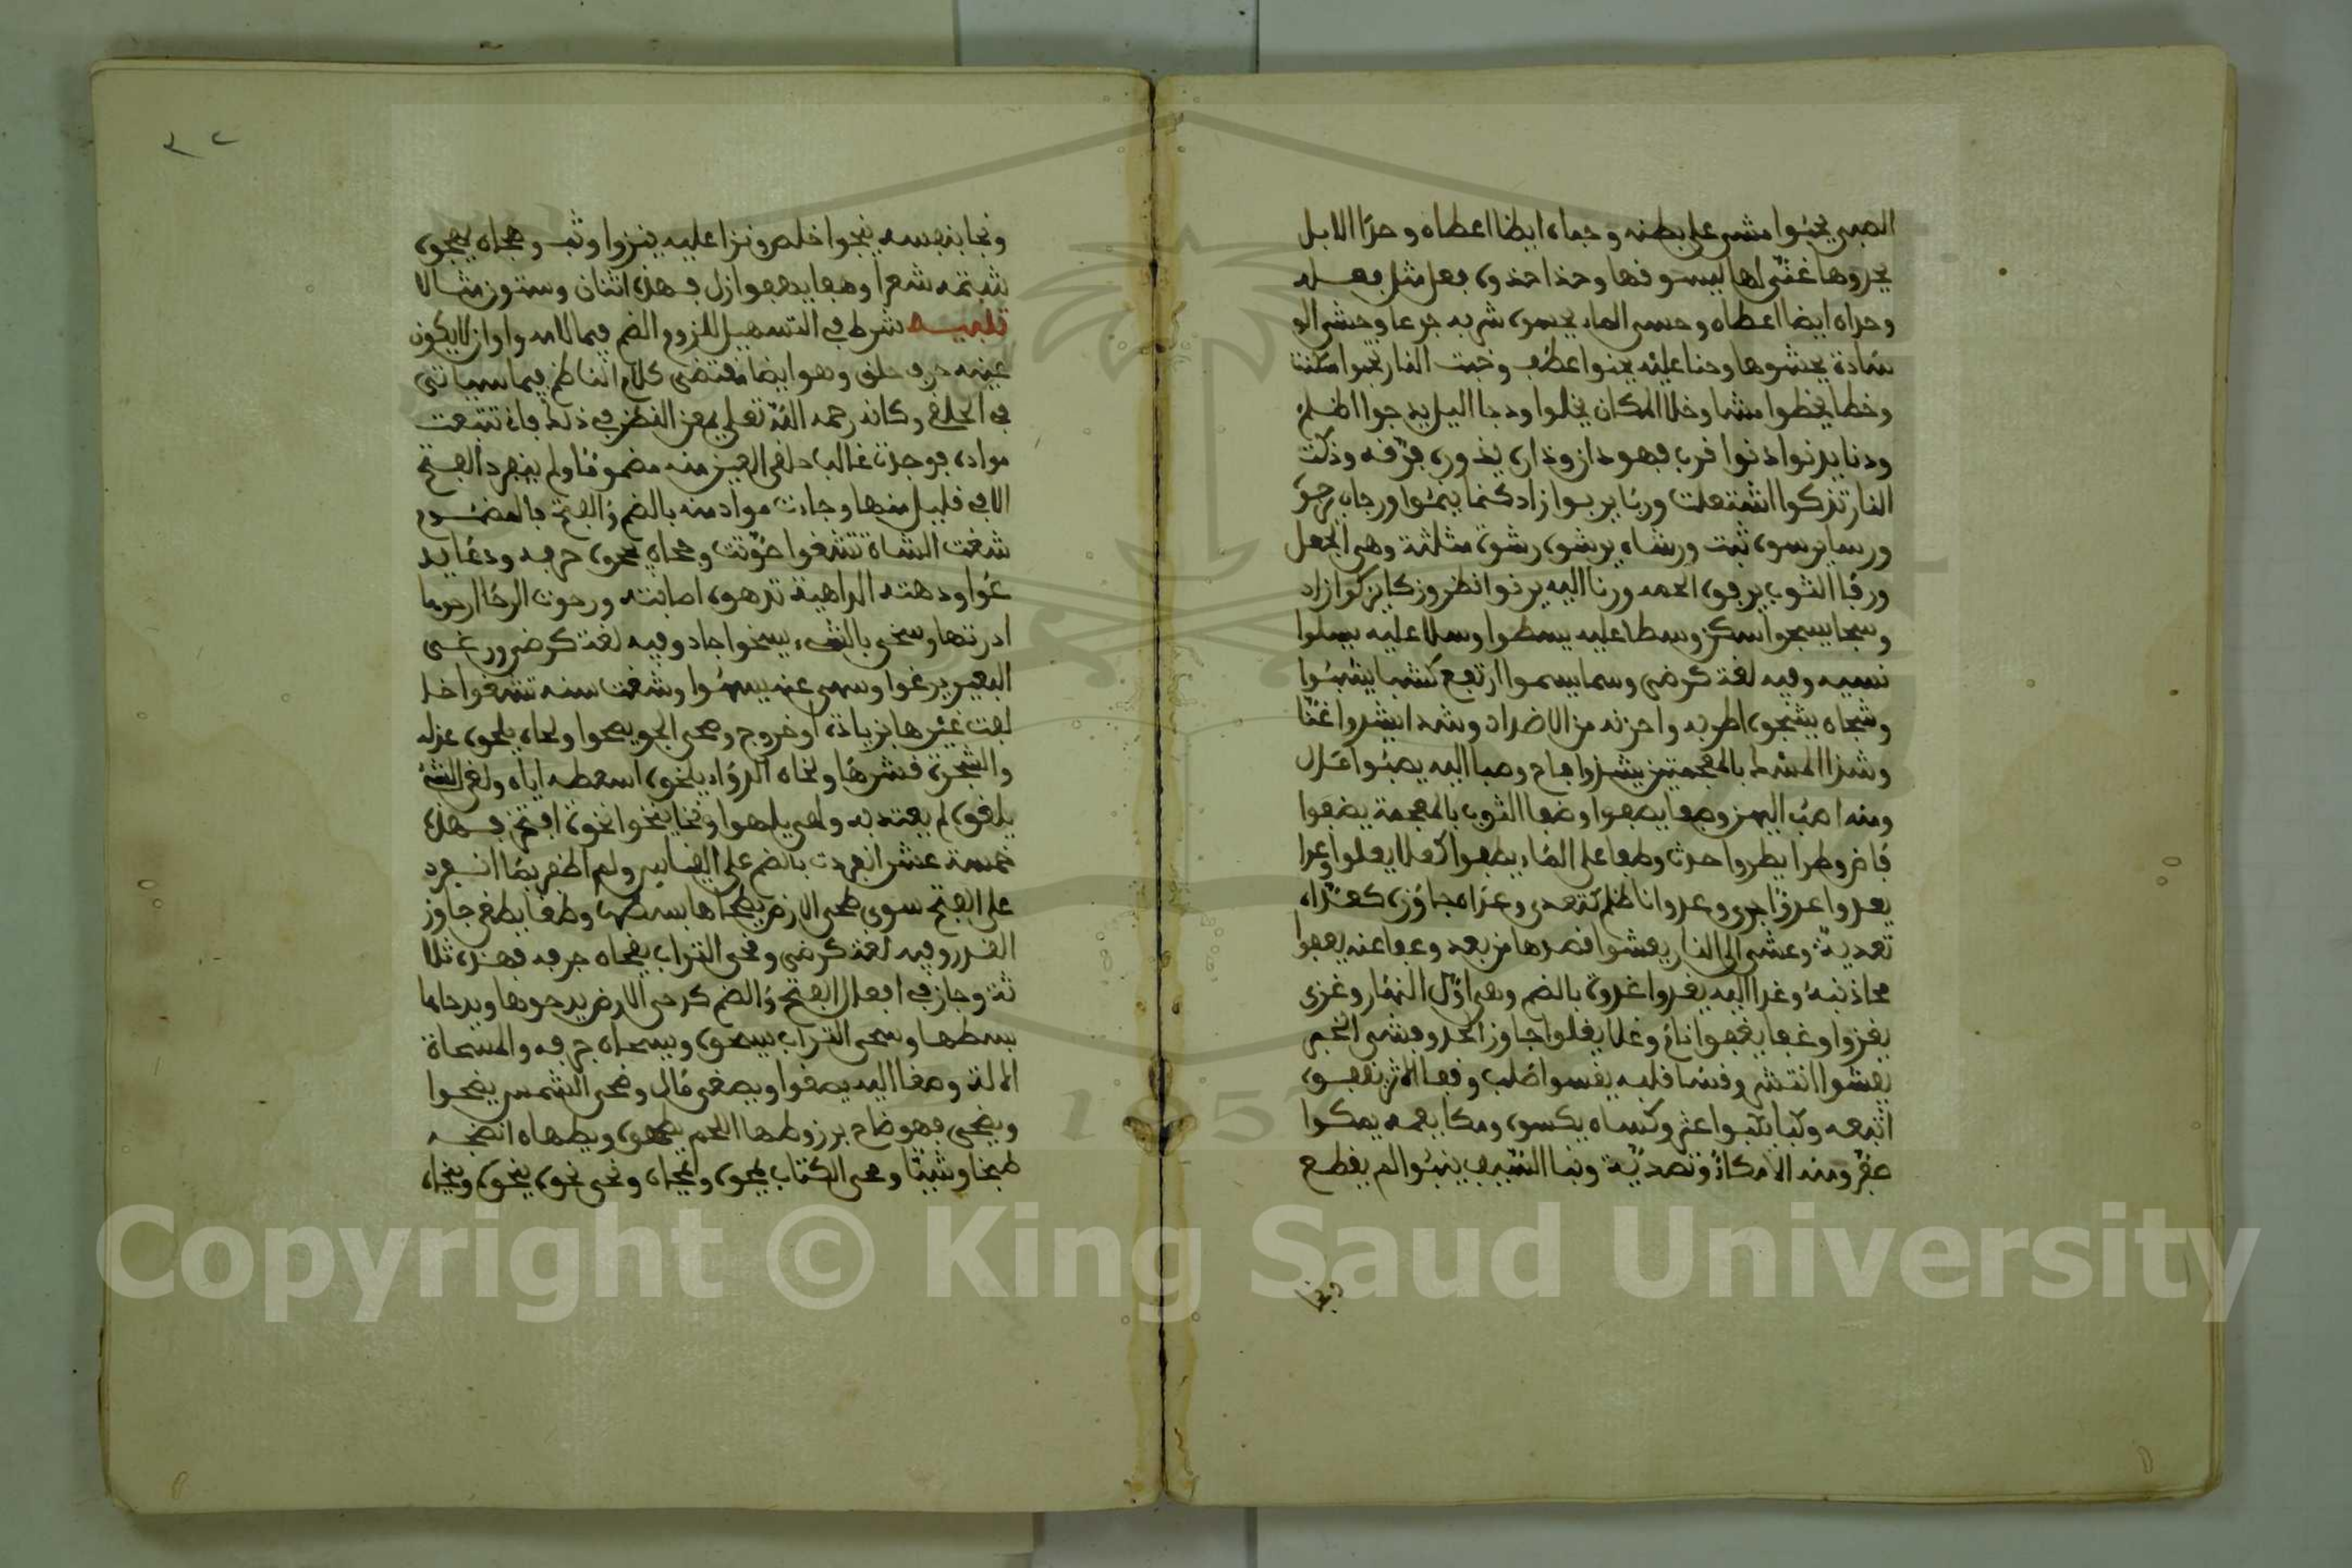 الصبى يحبوا مشى على بطنه وحباه ايضا اعطاه وحدا الابل
يحدوها غنى لها ليسوقها وحذا حذوه يفعل مثل فعله
وحذاه ايضا اعطاه وحسى الماء يحسوه شربه جرعا وحشى الو
سادة يحشوها وحنا عليه يحنوا عطف وخبت النار تخبوا سكنت
وخطا يخطوا مشا وخلا المكان يخلوا ودجا اليل يدجوا اظلم
ودنا يدنوا دنوا قرب فهو دان وذراه يذروه فرقه وذكت
النار تذكوا اشتعلت وربا يربوا زاد كنما ينموا ورجاه يرجوه
ورسا يرسوى ثبت ورشاه يرشوه رشوة مثلثة وهى الجعل
ورفا الثوب يرفوه لحمه ورنا اليه يرنوا نظر وزكا يزكوا زاد
وسجا يسجوا سكن وسطا عليه يسطوا وسلا عليه يسلوا
نسيه وفيه لغة كرضى وسما يسموا ارتفع كشبا يشبوا
وشجاه يشجوه اطربه واحزنه من الاضداد وشدا يشدوا غنا
وشذا المسك بالمعجمتين يشذوا فاح وصبا اليه يصبوا مال
ومنه اصب اليهن وصفا يصفوا وضفا الثوب بالمعجمة يضفوا
فاض وطرا يطروا حدث وطفا على الماء يطفوا كعلا يعلوا وعدا
يعدوا عدوا جرى وعدوانا ظلم كتعدى وعداه جاوزه كعداه
تعدية وعشى الى النار يعشوا قصدها من بعد وعفا عنه يعفوا
محا ذنبه وغدا اليه يغدوا غدوة بالضم وهى اول النهار وغزى
يغزوا وغفا يغفوا نام وغلا يغلوا جاوز الحد وفشى الخبر
يفشوا انتشر وقسا قلبه يقسوا صلب وقفا الاثر يقفوه
اتبعه وكبا يكبوا عثر وكساه يكسوه ومكا بفمه يمكوا
صفر ومنه الا مكاء وتصدية ونبا السيف ينبوا لم يقطع
ونجا
ونجا بنفسه ينجوا خلص ونزا عليه ينزوا وثب وهجاه يهجوه
شتمه شعرا وهفا يهفوا زل فهذه اثنان وستون مثالا
تنبيه شرط فى التسهيل للزوم الضم فيما لامه واو ان لا يكون
عينه حرف حلق وهو ايضا مقتضى كلام الناظم فيما سياتى
فى الحلقى وكانه رحمه الله تعلى لم يمعن النظر فى ذلك فانى تتبعت
مواده فوجدت غالب حلقى العين منه مضموما ولم ينفرد الفتح
الا فى قليل منها وجاءت مواد منه بالضم والفتح فالمضموم
ثغت الشاة تثغوا صوتت و يحوه حرفه ودعا يد
عوا ودهته الداهية تدهوه اصابته ورحوت الرحا ارحوها
ادرتها وسخى بالشىء يسخوا جاد وفيه لغة كرضى ورغى
البعير يرغوا وسهى عنه يسهوا وشغت سنه تشغوا خا
لفت غيرها بزيادة او خروج وصحى الجو يصحوا ولحاه يلحوه عذله
والشجرة قشرها ولخاه الدواء يلخوه اسعطه اياه ولغى الشىء
يلغوه لم يعتد به ولهى يلهوا ونخا ينخوا نخوة افتخر فهذه
خمسة عشر انفردت بالضم على القياس ولم اظفر بما انفرد
على الفتح سوى طحى الارض يطحاها بسطها وطغا يطغى جاوز
القدر وفيه لغة كرضى وفحى التراب يفحاه جرفه فهذه ثلا
ثة وجاز فى افعال الفتح والضم كدحى الارض يدحوها ويدحاها
بسطها وسحى التراب يسحوه ويسحاه جرفه والمسحاة
الالة وصغا اليه يصغوا ويصغى مال وضحى الشمس يضحوا
ويضحى فهو ضاح برز وطها اللحم يطهوه ويطهاه انضجه
طبخا وشيا ومحى الكتاب يمحوه ويمحاه ونحى نحوه ينحوه وينحاه